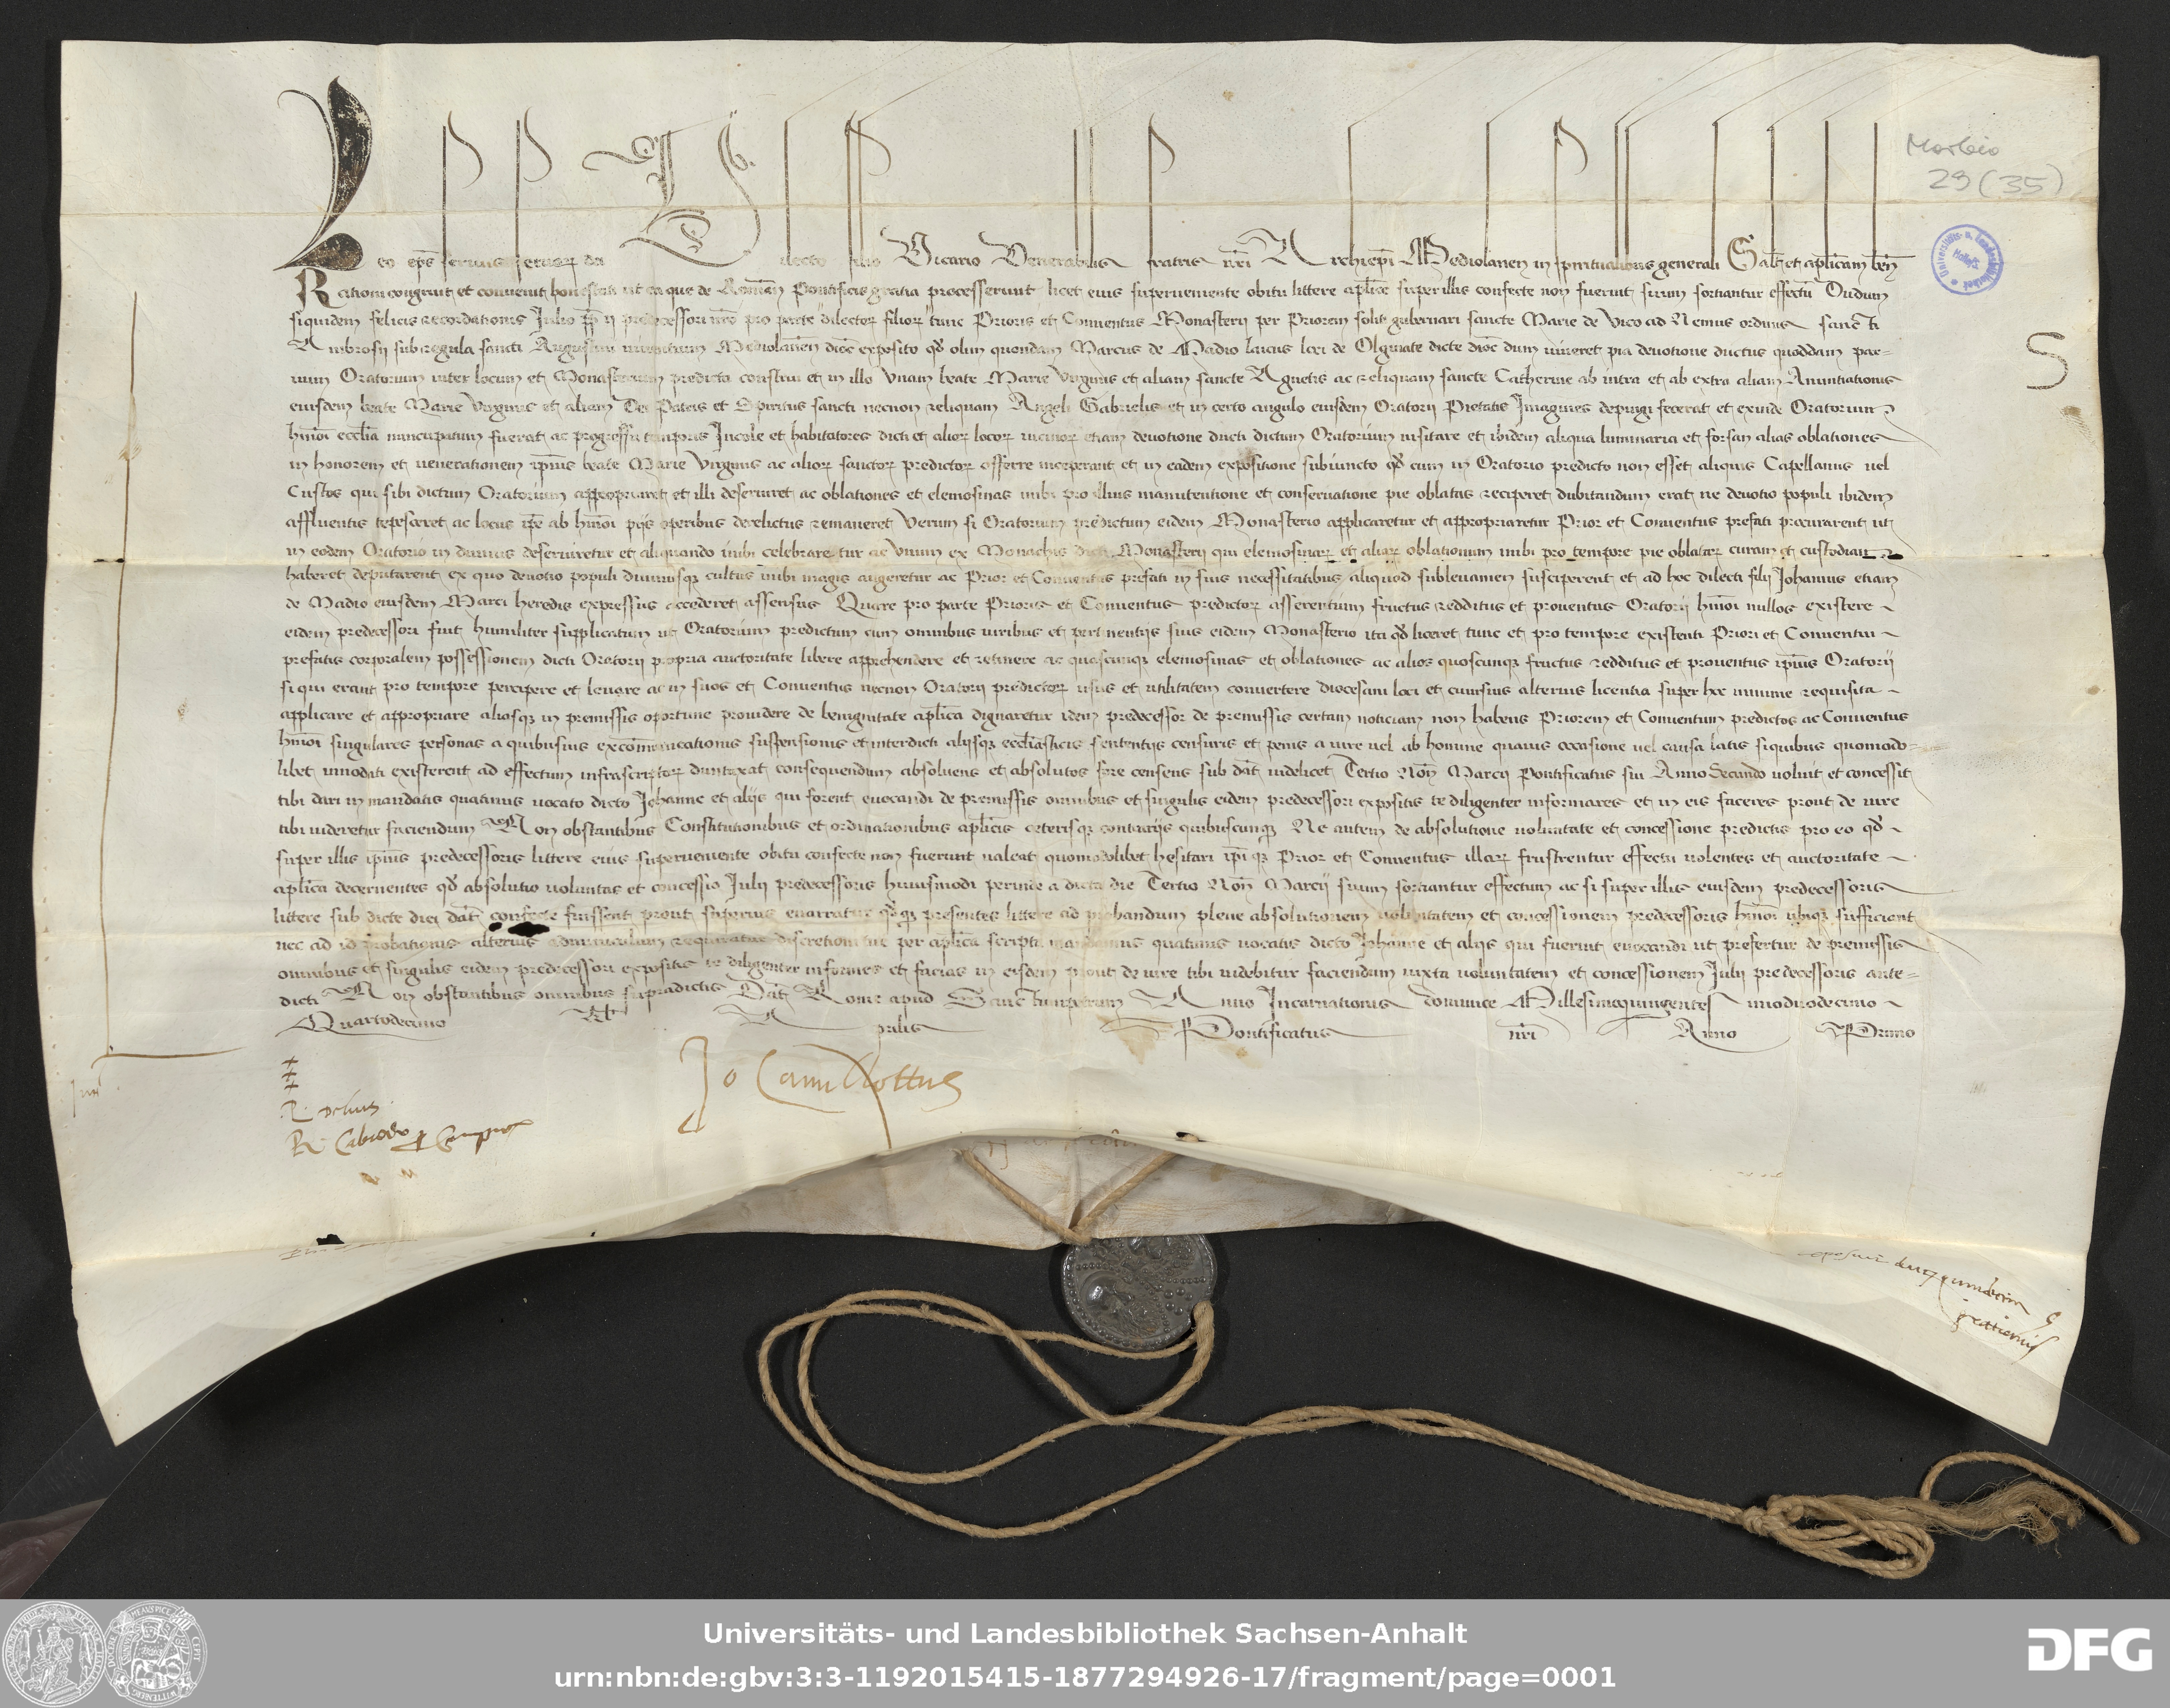 Morbio
29 (35)
Leo ep̄s servus servoꝝ dei Dilecto filio Vicario Venerabilis fratris nr̄i Archiep̄i Mediolaneñ in spiritualibus generali Saltm̄ et aplicam beñ
Rationi congruit et convenit honestati ut ea que de Romañ Pontificis gratia processerunt licet eius superveniente obitu littere aplice super illis confecte non fuerint suum sortiantur effectū Dudum
siquidem felicis recordationis Julio pp̄ ij predecessori nr̄o pro parte dilectoꝝ filioꝝ tunc Prioris et Conventus Monasterij per Priorem soliti gubernari sancte Marie de Vico ad Nemus ordinis sancti
Ambrosij sub regula sancti Augustini viventium Mediolaneñ dioc̄ exposito qd̄ olim quondam Marcus de Madio laicus loci de Olginate dicte dioc̄ dum viveret pia devotione ductus quoddam par-
vum Oratorium inter locum et Monasterium predicta construi et in illo Unam beate Marie Virginis et aliam sancte Agnetis ac reliquam sancte Catherine ab intra et ab extra aliam Anuntiationis
eiusdem beate Marie Virginis et aliam Dei Patris et Spiritus sancti necnon reliquam Angeli Gabrielis et in certo angulo eiusdem Oratorij Pietatis Imagines depingi fecerat et exinde Oratorium
hm̄oi ecclia nuncupatum fuerat ac progressu temporis Incole et habitatores dicti et alioꝝ locoꝝ vicinoꝝ etiam devotione ducti dictum Oratorium visitare et ibidem aliqua luminaria et forsan alias oblationes
in honorem et venerationem ip̄ius beate Marie Virginis ac alioꝝ sanctoꝝ predictoꝝ offerre inceperant et in eadem expositione subiuncto qd̄ cum in Oratorio predicto non esset aliquis Capellanus vel
Custos qui sibi dictum Oratorium appropriaret et illi deserviret ac oblationes et elemosinas inibi pro illius manutentione et conservatione pie oblatas reciperet dubitandum erat ne devotio populi ibidem
affluentis tepesceret ac locus ip̄e ab hm̄oi pijs operibus derelictus remaneret Verum si Oratorium predictum eidem Monasterio applicaretur et appropriaretur Prior et Conventus prefati procurarent ut
in eodem Oratorio in divinis deserviretur et aliquando inibi celebraretur ac Unum ex Monachis dicti Monasterij qui elemosinaꝝ et aliaꝝ oblationum inibi pro tempore pie oblataꝝ curam et custodiam
haberet deputarent ex quo devotio populi divinusqꝫ cultus inibi magis augeretur ac Prior et Conventus prefati in suis necessitatibus aliquod sublevamen susciperent et ad hoc dilecti filij Johannis etiam
de Madio eiusdem Marci heredis expressus accederet assensus Quare pro parte Prioris et Conventus predictoꝝ asserentium fructus redditus et proventus Oratorij hm̄oi nullos existere
eidem predecessori fuit humiliter supplicatum ut Oratorium predictum cum omnibus iuribus et pertinentijs suis eidem Monasterio ita qd̄ liceret tunc et pro tempore existenti Priori et Conventui
prefatis corporalem possessionem dicti Oratorij propria auctoritate libere apprehendere et retinere ac quascunqꝫ elemosinas et oblationes ac alios quoscunqꝫ fructus redditus et proventus ip̄ius Oratorij
si qui erant pro tempore percipere et levare ac in suos et Conventus necnon Oratorij predictoꝝ usus et utilitatem convertere diocesani loci et cuiusvis alterius licentia super hoc minime requisita
applicare et appropriare aliasqꝫ in premissis oportune providere de benignitate aplica dignaretur idem predecessor de premissis certam noticiam non habens Priorem et Conventum predictos ac Conventus
hm̄oi singulares personas a quibusvis excōmunicationis suspensionis et interdicti alijsqꝫ ecclesiasticis sententijs censuris et penis a iure vel ab homine quavis occasione vel causa latis si quibus quomodo-
libet innodati existerent ad effectum infrascriptoꝝ duntaxat consequendum absolvens et absolutos fore censens sub dat̄ videlicet Tertio Noñ Marcij Pontificatus sui Anno Secundo voluit et concessit
tibi dari in mandatis quatinus vocato dicto Johanne et alijs qui forent evocandi de premissis omnibus et singulis eidem predecessori expositis te diligenter informares et in eis faceres prout de iure
tibi videretur faciendum Non obstantibus Constitutionibus et ordinationibus aplicis ceterisqꝫ contrarijs quibuscunqꝫ Ne autem de absolutione voluntate et concessione predictis pro eo qd̄
super illis ip̄ius predecessoris littere eius superveniente obitu confecte non fuerunt valeat quomodolibet hesitari ip̄iqꝫ Prior et Conventus illaꝝ frustrentur effectu volentes et auctoritate
aplica decernentes qd̄ absolutio voluntas et concessio Julij predecessoris huiusmodi perinde a dicta die Tertio Noñ Marcij suum sortiantur effectum ac si super illis eiusdem predecessoris
littere sub dicte diei dat̄ confecte fuissent prout superius enarratur qd̄qꝫ presentes littere ad probandum plene absolutionem voluntatem et concessionem predecessoris hm̄oi ubiqꝫ sufficiant
nec ad id probationis alterius adminiculum requiratur discretioni tue per aplica scripta mandamus quatinus vocatis dicto Johanne et alijs qui fuerint evocandi ut prefertur de premissis
omnibus et singulis eidem predecessori expositis te diligenter informes et facias in eisdem prout de iure tibi videbitur faciendum iuxta voluntatem et concessionem Julij predecessoris ante-
dicti Non obstantibus omnibus supradictis Dat̄ Rome apud Sanctumpetrum Anno Incarnationis dominice Millesimoquingentesimoduodecimo
Quartodecimo Kl Aprilis Pontificatus nr̄i Anno Primo
S
Universitäts- u. Landesbibliothek Halle/S.
Universitäts- und Landesbibliothek Sachsen-Anhalt
urn:nbn:de:gbv:3:3-1192015415-1877294926-17/fragment/page=0001
DFG